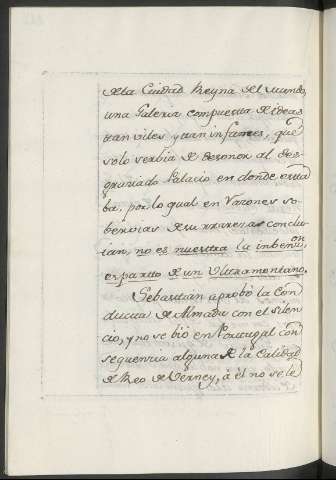 de la Ciudad Reyna del mundo,
una Galeria compuesta de ideas
tan viles y tan infames, que
solo serbia de desonor al des-
graciado Palacio en donde esta
ba, por lo qual en Varones so
bervias de sus razas conclu
ian, no es nuestra la inbencion,
es parto de un Ultramontano.
Sebastian aprobò la con
ducta de Almada con el silen
cio, y no se biò en Portugal con
sequencia alguna de la calidad
de Reo de Verney, à èl no se le